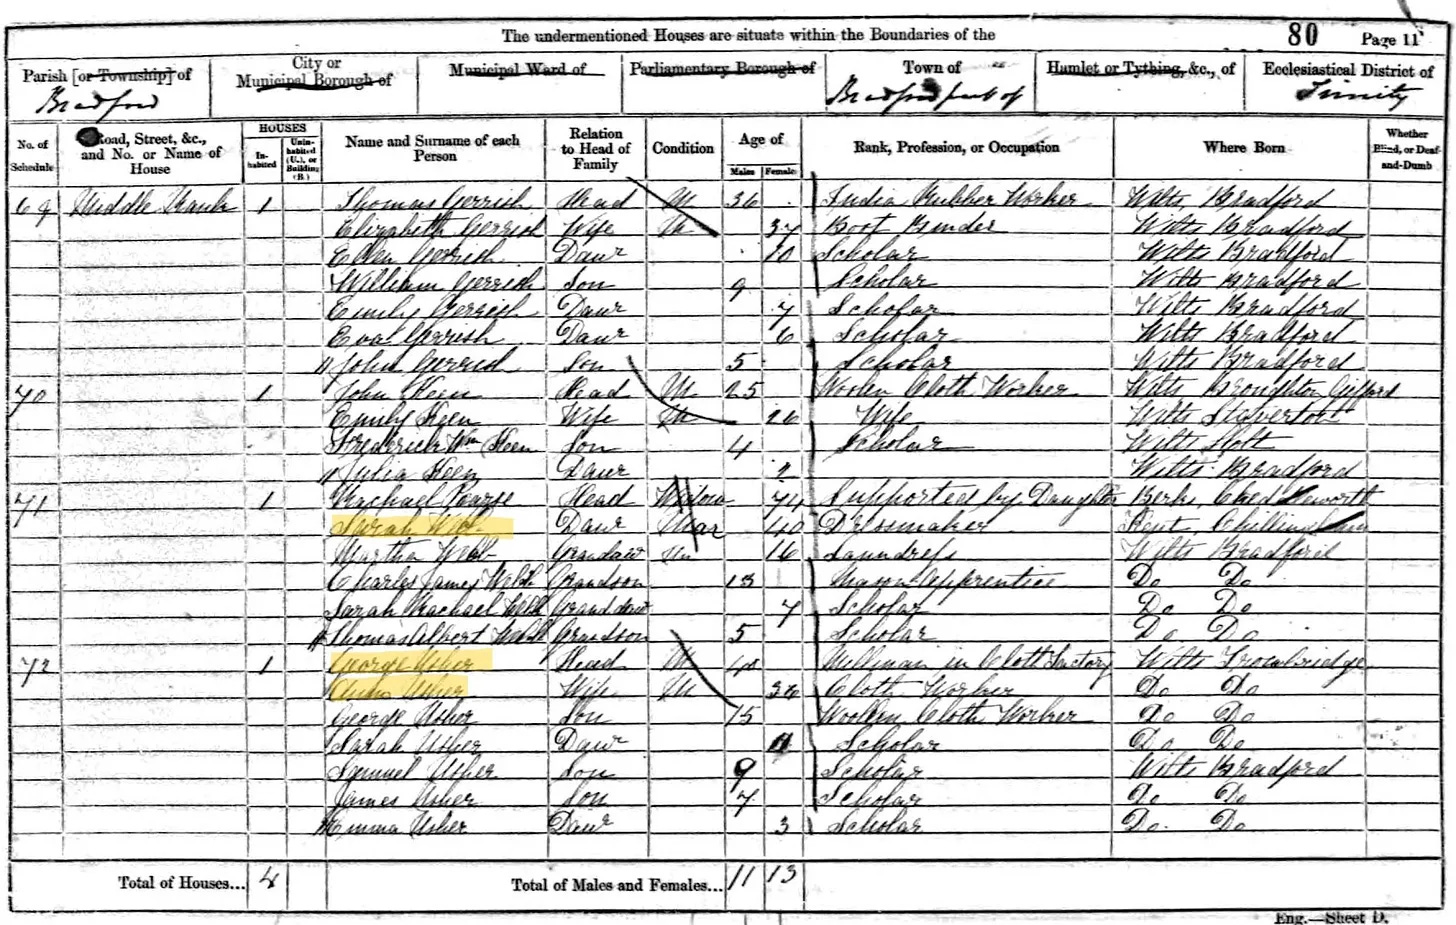 The undermentioned Houses are situate within the Boundaries of the 80 Page 11
Parish [or Township] of City or Municipal Borough of Municipal Ward of Parliamentary Borough of Town of Hamlet or Tything, &c., of Ecclesiastical District of
Bradford Bradford part of Trinity
No. of Schedule Road, Street, &c., and No. or Name of House HOUSES Inhabited Uninhabited (U.), or Building (B.) Name and Surname of each Person Relation to Head of Family Condition Age of Males Females Rank, Profession, or Occupation Where Born Whether Blind, or Deaf-and-Dumb
69 Middle Rank 1 Thomas Gerrish Head M 36 India Rubber Worker Wilts Bradford
Elizabeth Gerrish Wife M 37 Boot Binder Wilts Bradford
Ellen Gerrish Daur 10 Scholar Wilts Bradford
William Gerrish Son 9 Scholar Wilts Bradford
Emily Gerrish Daur 7 Scholar Wilts Bradford
Eva Gerrish Daur 6 Scholar Wilts Bradford
John Gerrish Son 5 Scholar Wilts Bradford
70 1 John Keen Head M 25 Woolen Cloth Worker Wilts Broughton Gifford
Emily Keen Wife M 26 Wife Wilts Staverton
Frederick Wm Keen Son 4 Scholar Wilts Holt
Julia Keen Daur 2 Wilts Bradford
71 1 Rachael Pearse Head Widow 74 Supported by Daughter Berks,
Sarah Webb Daur Mar 40 Dressmaker Kent, Chillingham
Martha Webb Grandaur Un 16 Laundress Wilts Bradford
Charles James Webb Grandson 13 Mason Apprentice Do Do
Sarah Rachael Webb Grand daur 7 Scholar Do Do
Thomas Albert Webb Grandson 5 Scholar Do Do
72 1 George Usher Head M 40 Millman in Cloth Factory Wilts Trowbridge
Ann Usher Wife M 36 Cloth Worker Do Do
George Usher Son 15 Woollen Cloth Worker Do Do
Sarah Usher Daur 11 Scholar Do Do
Samuel Usher Son 9 Scholar Wilts Bradford
James Usher Son 7 Scholar Do Do
Emma Usher Daur 3 Scholar Do Do
Total of Houses... 4 Total of Males and Females... 11 13
Eng.—Sheet D.